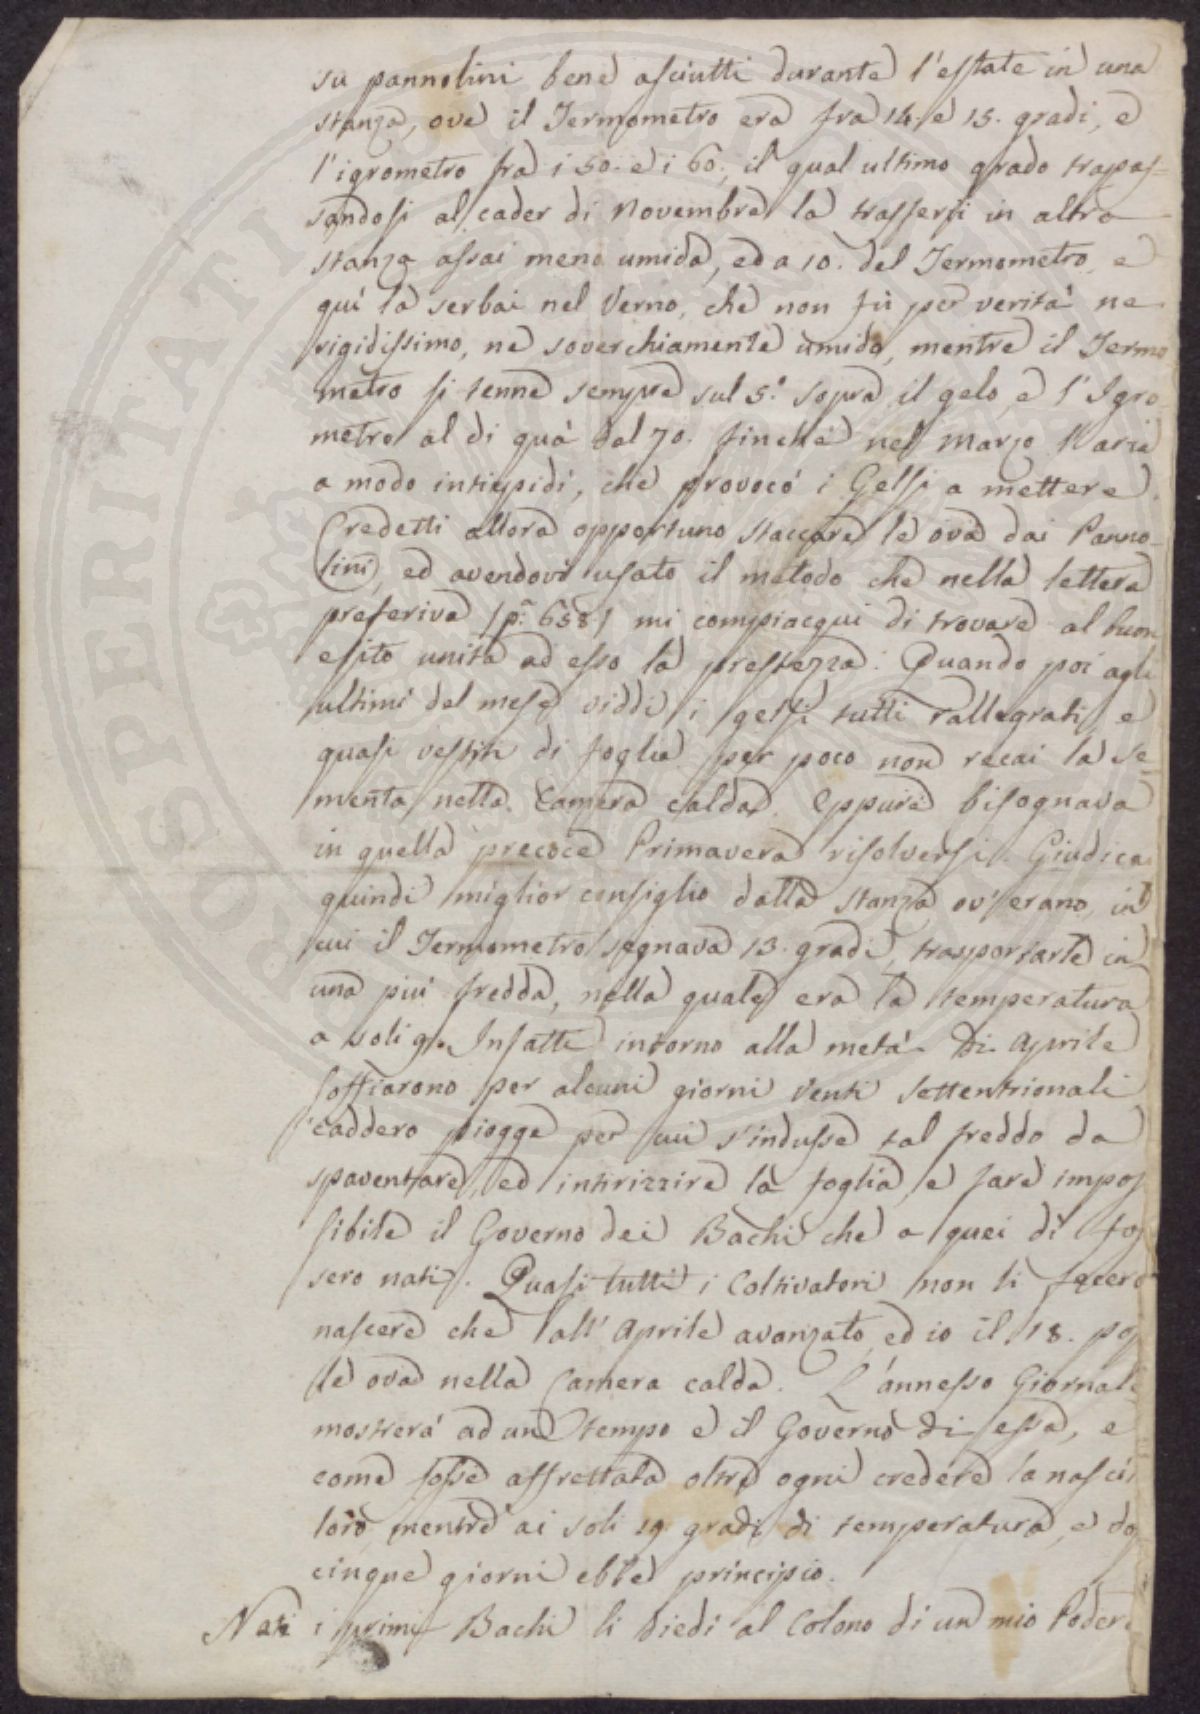 su pannolini bene asciutti durante l'estate in una
stanza, ove il Termometro era fra 14. e 15. gradi, e
l'igrometro fra i 50. e i 60., il qual ultimo grado trapas=
sandosi al cader di Novembre la trasferii in altra
stanza assai meno umida, ed a 10. del Termometro, e
quì la serbai nel Verno, che non fù per verità ne
rigidissimo, ne soverchiamente umido, mentre il Termo
metro si tenne sempre sul 5.° sopra il gelo, e l'Igro
metro al di quà del 70. finchè nel Marzo l'aria
a modo intiepidì, che provocò i Gelsi a mettere.
Credetti allora opportuno staccare le ova dai Panno=
lini, ed avendovi usato il metodo che nella lettera
preferiva (p: 658) mi compiacqui di trovare al buon
esito unita ad esso la prestezza. Quando poi agli
ultimi del mese viddi i gelsi tutti rallegrati, e
quasi vestiti di foglia per poco non recai la se
menta nella Camera calda. Eppure bisognava
in quella precoce Primavera risolversi. Giudicai
quindi miglior consiglio dalla stanza ov'erano, in
cui il Termometro segnava 13. gradi, trasportarle in
una più fredda, nella quale era la temperatura
a soli 9. Infatti intorno alla metà di Aprile
soffiarono per alcuni giorni venti settentrionali
caddero piogge per cui s'indusse tal freddo da
spaventare, ed intirizzire la foglia, e fare impos
sibile il Governo dei Bachi che a quei dì fos
sero nati. Quasi tutti i Coltivatori non li fecero
nascere che all'Aprile avanzato, ed io il 18. posi
le ova nella Camera calda. L'annesso Giornale
mostrerà ad un tempo e il Governo di essa, e
come fosse affrettata oltre ogni credere la nascita
loro, mentre ai soli 19. gradi di temperatura, e dopo
cinque giorni ebbe principio.
Nati i primi Bachi li diedi al Colono di un mio Podere